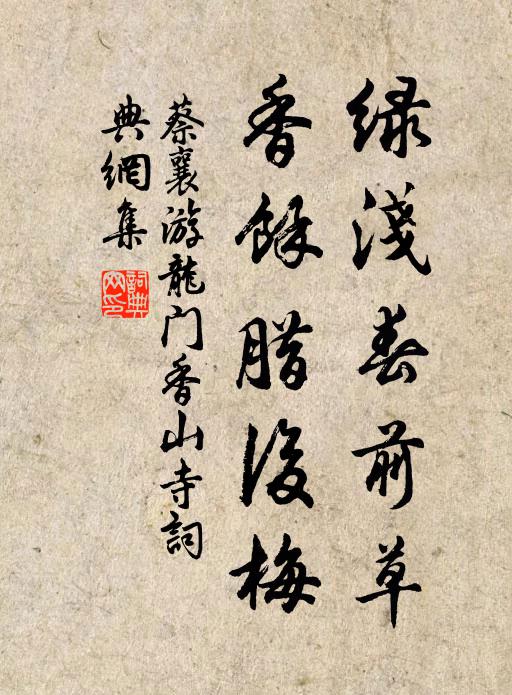 绿淺春前草
香餘腊後梅
蔡襄游龍门香山寺詞
典網集
詞典网印